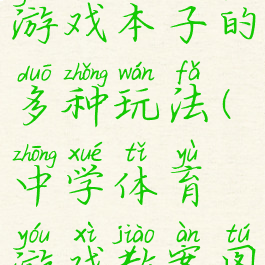 游戏本子的
duō zhǒng wán fǎ
多种玩法(
zhōng xué tǐ yù
中学体育
yóu xì jiào àn tú
游戏教案图